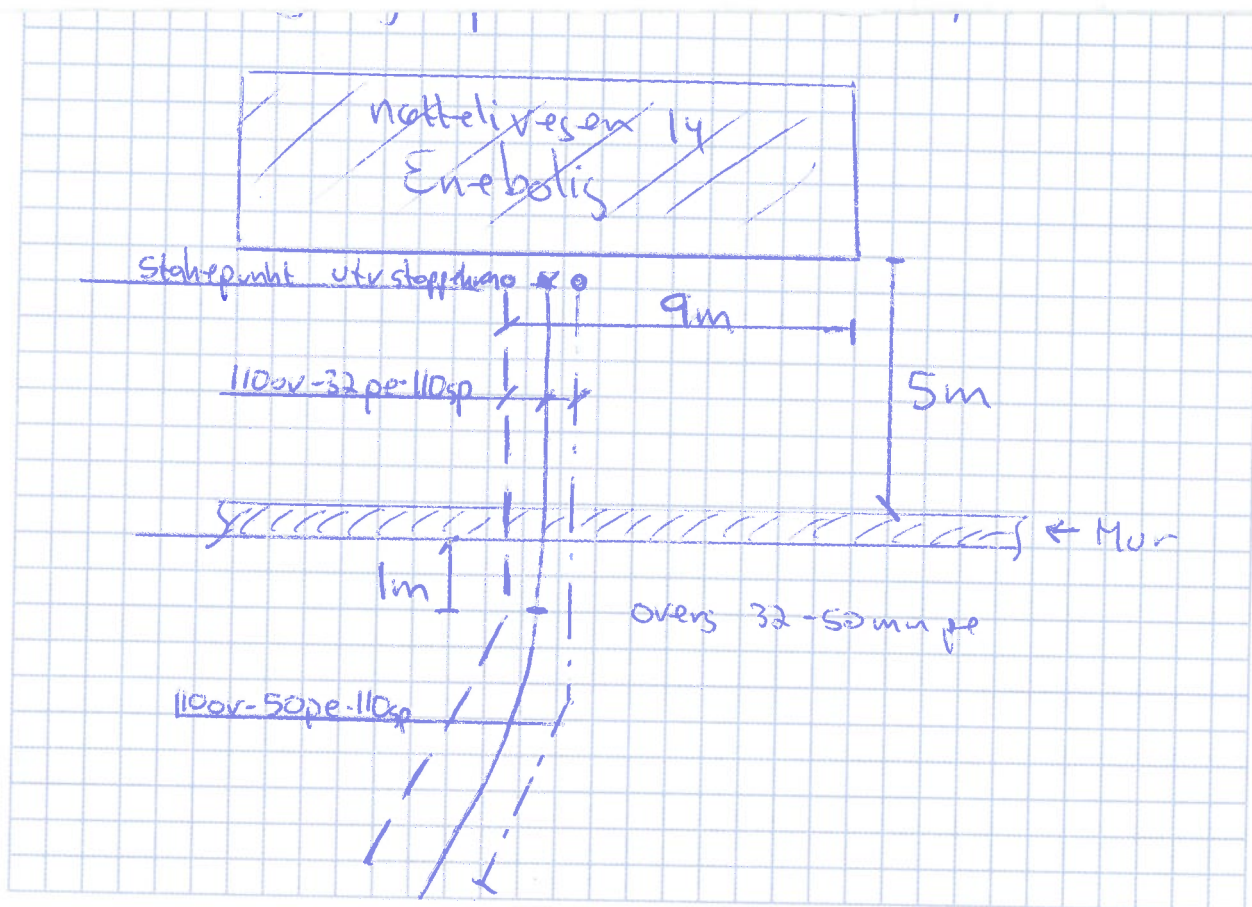 nøttelivegen 14
Enebolig
Stakepunkt utv stoppekran
9m
110ov-32pe-110sp
5m
← Mur
1m
overg 32-50mm pe
110ov-50pe-110sp